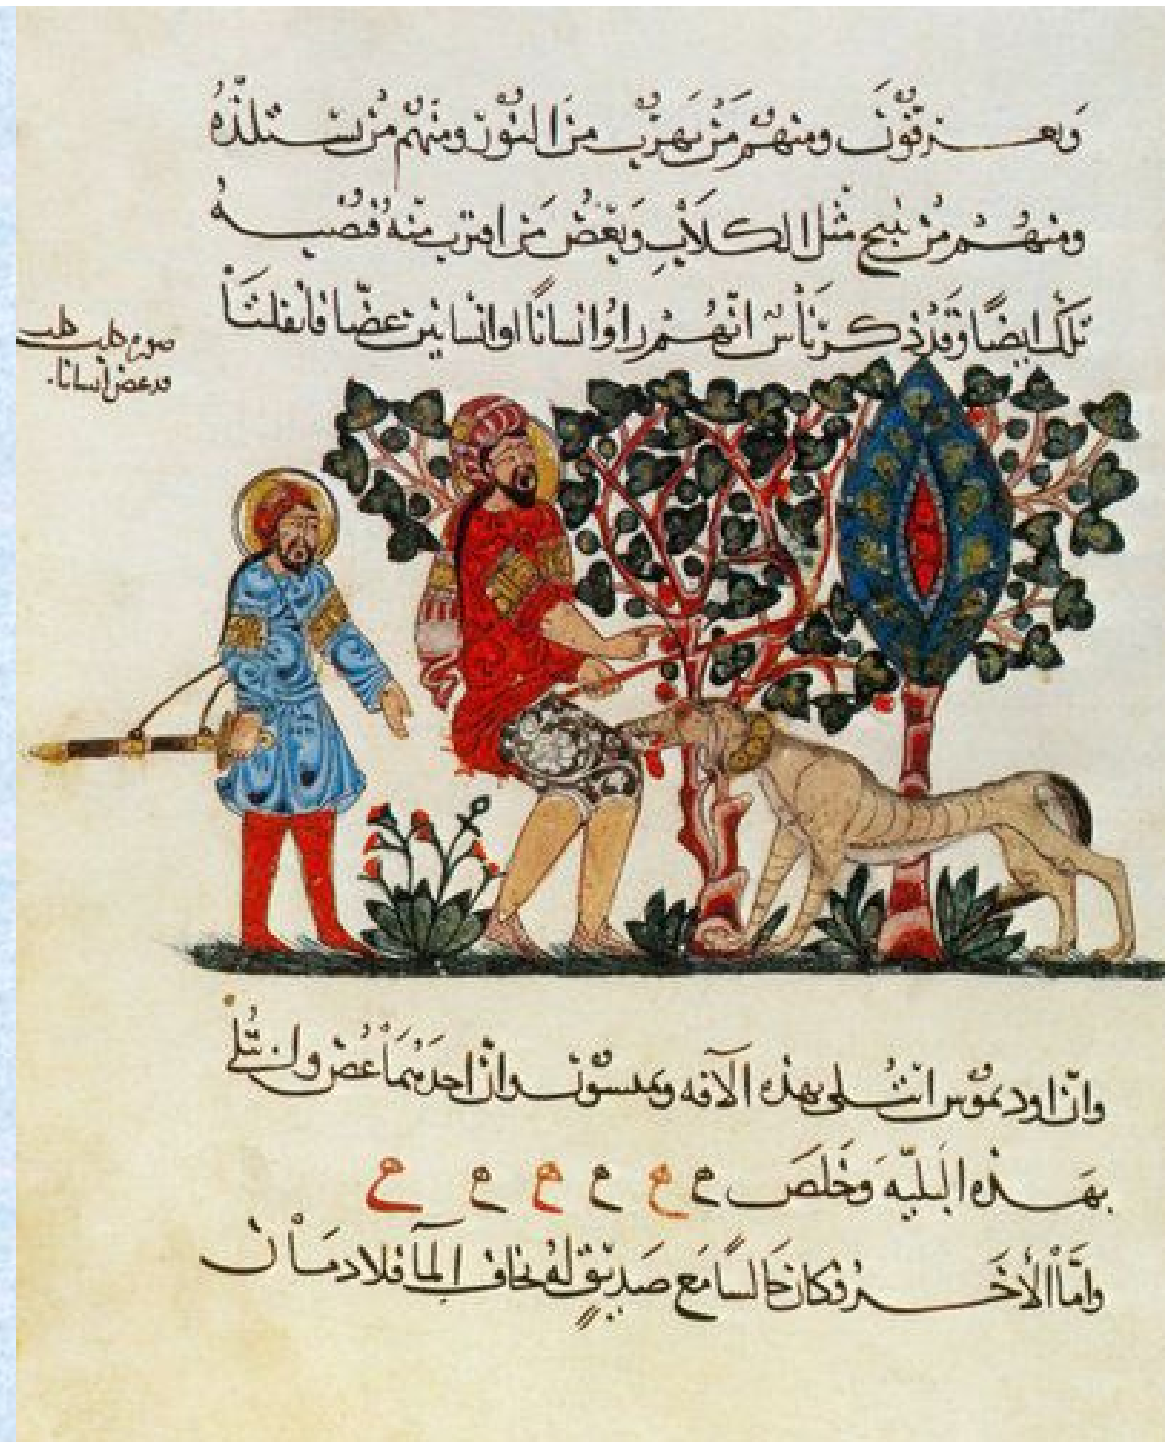 ويعرقون ومنهم من يهرب من النور ومنهم من يستلذه
ومنهم من ينبح مثل الكلاب ويعض من اقترب منه فتصيبه
تلك ايضا وقد ذكر ناس انهم راوا انسانا او انسانين عضا فانفلتا
صورة كلب كلب
قد عض انسانا
وان اوديموس ابتلى بهذه الآفه وان احدهما عض وابتلى
بهذه البليه وخلص
واما الآخر فكان جالسا مع صديق له يخاف الما